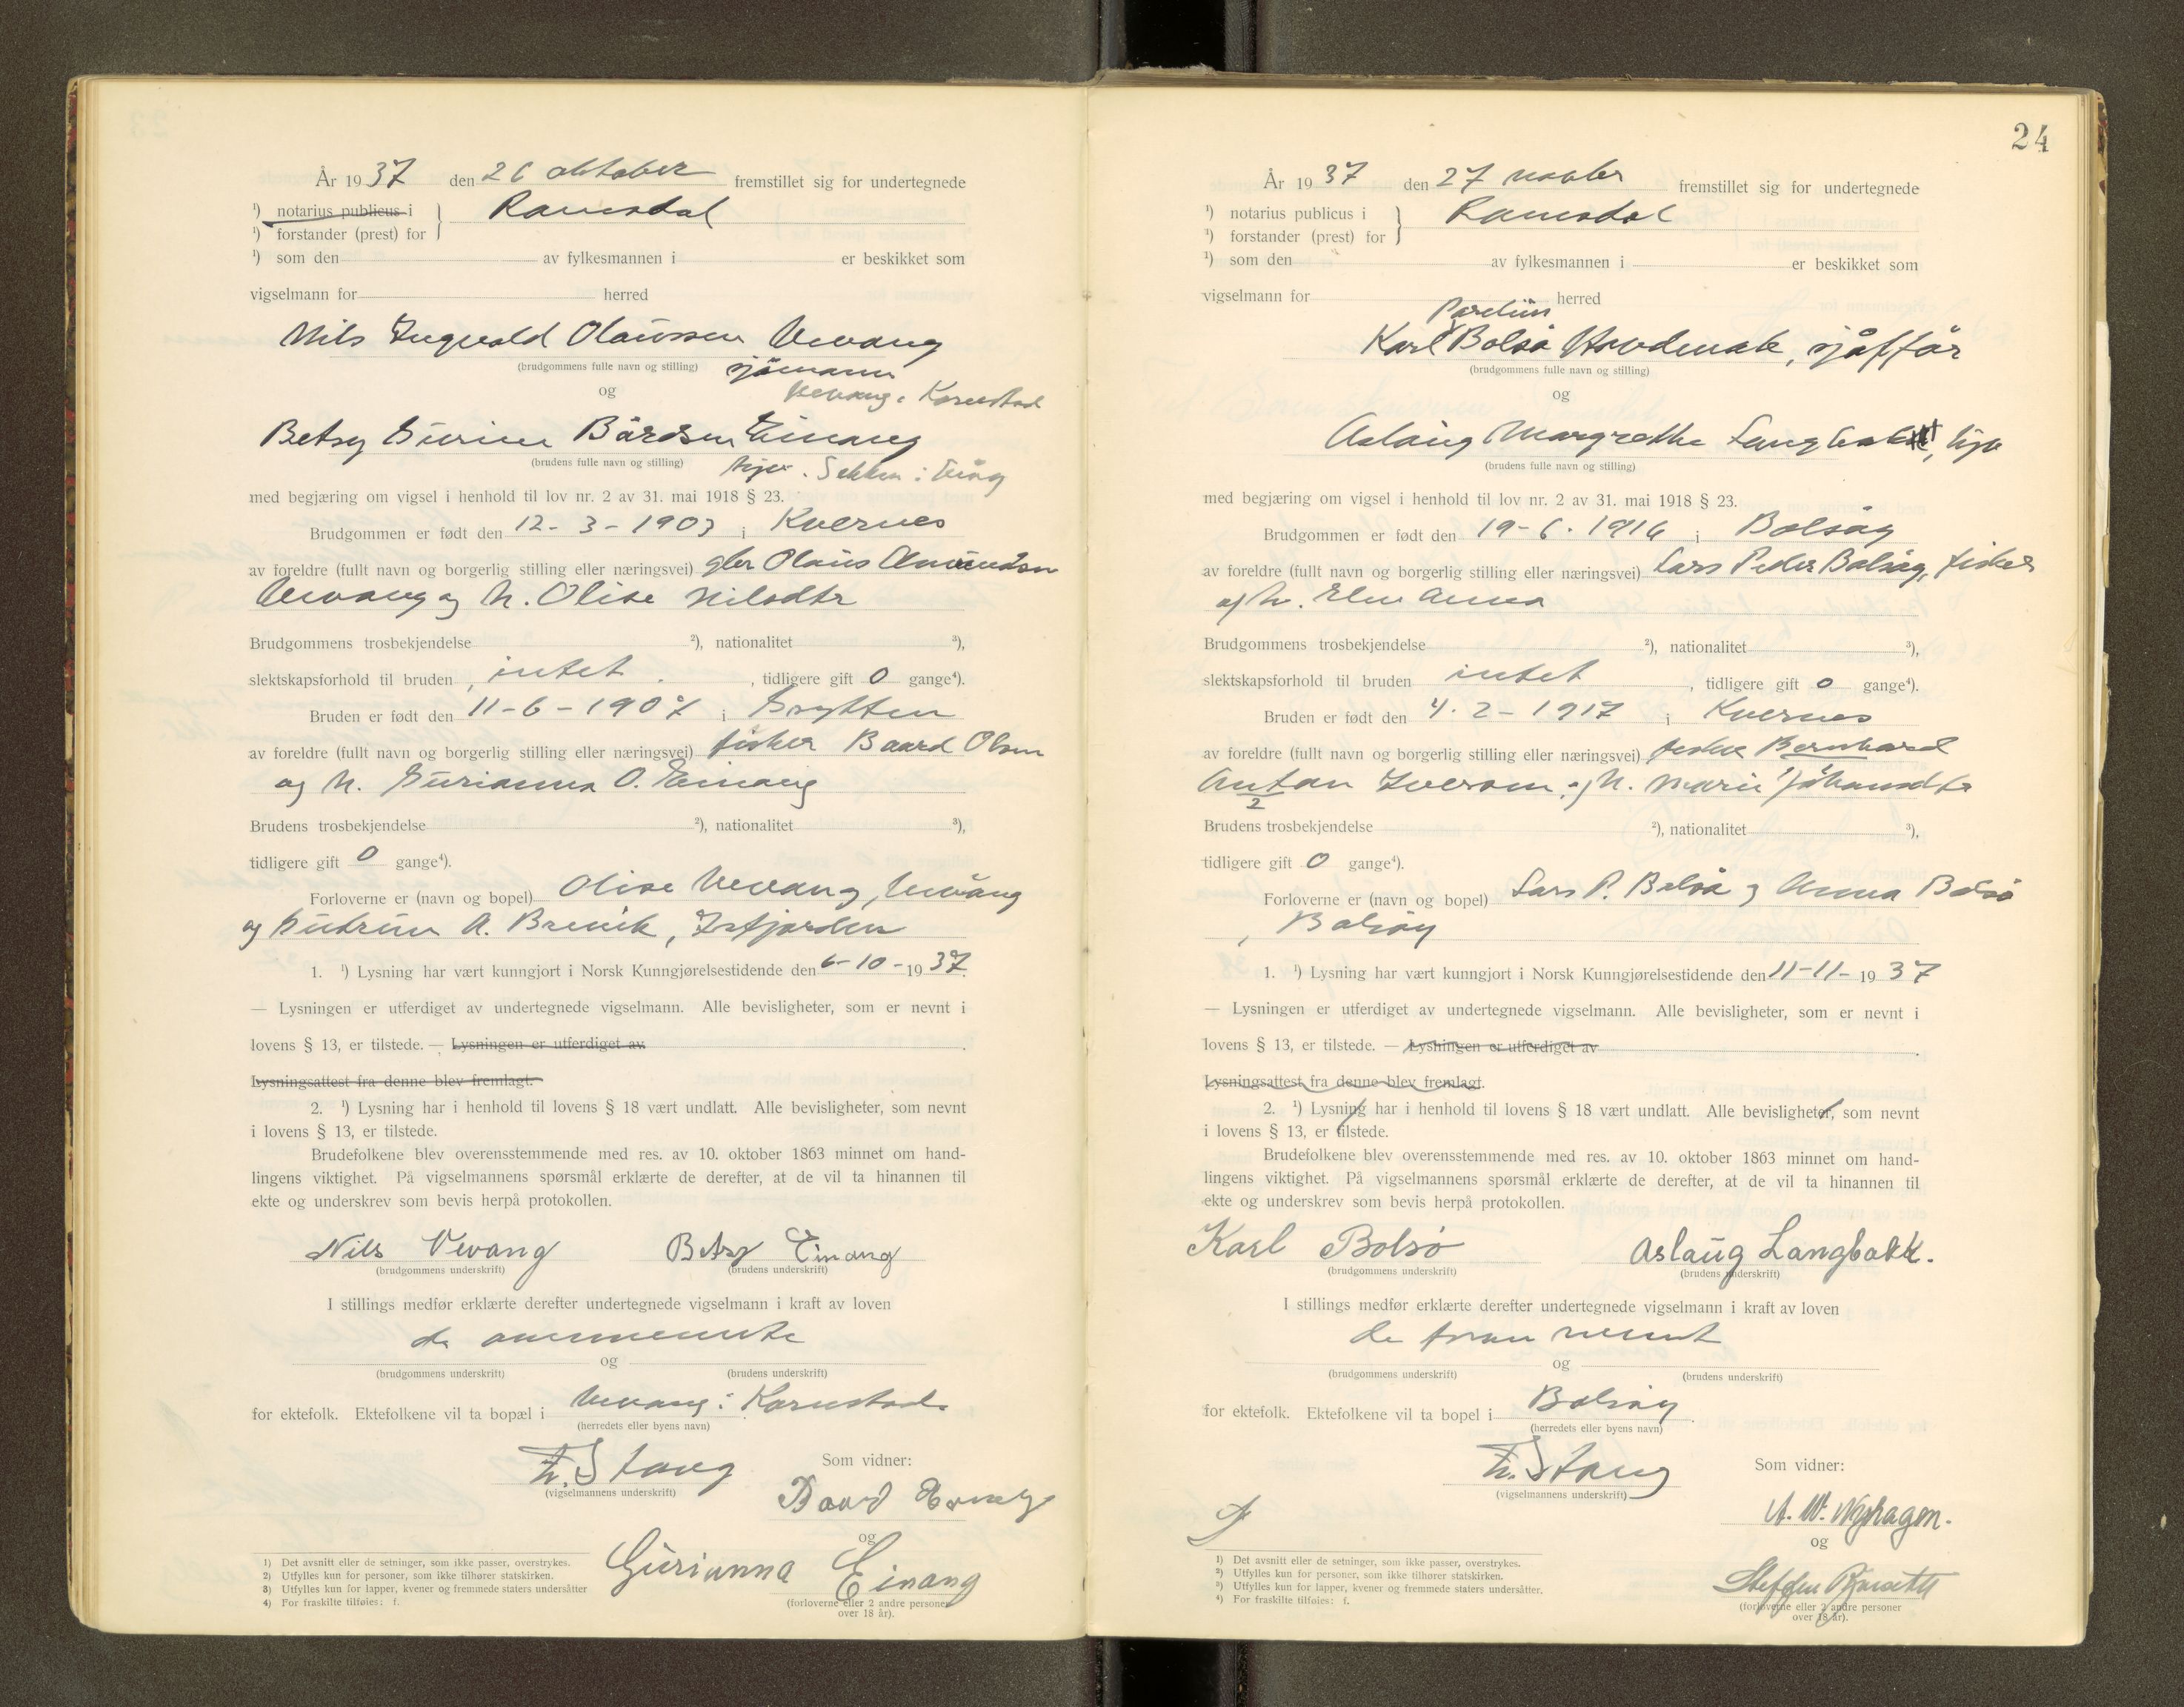 År 1937 den 26 oktober fremstillet sig for undertegnede
¹) notarius publicus i
Ramsdal
¹) forstander (prest) for
¹) som den av fylkesmannen i er beskikket som
vigselmann for herred
Nils Ingvald Olaussen Vevang
(brudgommens fulle navn og stilling) sjömann
og Vevang i Kornstad
Betsy Gurine Bårdsen Einang
(brudens fulle navn og stilling) Sekken i Veøy
med begjæring om vigsel i henhold til lov nr. 2 av 31. mai 1918 § 23.
Brudgommen er født den 12-3-1903 i Kvernes
av foreldre (fullt navn og borgerlig stilling eller næringsvei) gbr Olaus Amundsen
Vevang og h. Olise Nilsdtr
Brudgommens trosbekjendelse ²), nationalitet ³),
slektskapsforhold til bruden , intet . , tidligere gift 0 gange⁴).
Bruden er født den 11-6-1907 i Grytten
av foreldre (fullt navn og borgerlig stilling eller næringsvei) fisker Baard Olsen
og h. Gurianna O. Einang
Brudens trosbekjendelse ²), nationalitet ³),
tidligere gift 0 gange⁴).
Forloverne er (navn og bopel) Olise Vevang, Vevang
og Gudrun A. Brevik, Isfjorden
1. ¹) Lysning har vært kunngjort i Norsk Kunngjørelsestidende den 6-10-1937.
— Lysningen er utferdiget av undertegnede vigselmann. Alle bevisligheter, som er nevnt i
lovens § 13, er tilstede. — Lysningen er utferdiget av .
Lysningsattest fra denne blev fremlagt.
2. ¹) Lysning har i henhold til lovens § 18 vært undlatt. Alle bevisligheter, som nevnt
i lovens § 13, er tilstede.
Brudefolkene blev overensstemmende med res. av 10. oktober 1863 minnet om hand-
lingens viktighet. På vigselmannens spørsmål erklærte de derefter, at de vil ta hinannen til
ekte og underskrev som bevis herpå protokollen.
Nils Vevang Betsy Einang
(brudgommens underskrift) (brudens underskrift)
I stillings medfør erklærte derefter undertegnede vigselmann i kraft av loven
de ovennevnte
og
(brudgommens underskrift) (brudens underskrift)
for ektefolk. Ektefolkene vil ta bopæl i Vevang i Kornstad.
(herredets eller byens navn)
Fr. Stang Som vidner:
(vigselmannens underskrift)
Baard Einang
og
Gurianna Einang
(forloverne eller 2 andre personer
over 18 år).
1) Det avsnitt eller de setninger, som ikke passer, overstrykes.
2) Utfylles kun for personer, som ikke tilhører statskirken.
3) Utfylles kun for lapper, kvener og fremmede staters undersåtter
4) For fraskilte tilføies: f.
24
År 1937 den 27 novbr fremstillet sig for undertegnede
¹) notarius publicus i
Ramsdal
¹) forstander (prest) for
¹) som den av fylkesmannen i er beskikket som
vigselmann for herred
Karl Bolsø Hovdenak, sjåffør
(brudgommens fulle navn og stilling)
og
Aslaug Margrethe Langbakk
(brudens fulle navn og stilling)
med begjæring om vigsel i henhold til lov nr. 2 av 31. mai 1918 § 23.
Brudgommen er født den 19-6-1916 i Bolsøy
av foreldre (fullt navn og borgerlig stilling eller næringsvei) Lars Peder Bolsøy, fisker
og h. Elen Anna
Brudgommens trosbekjendelse ²), nationalitet ³),
slektskapsforhold til bruden intet , tidligere gift 0 gange⁴).
Bruden er født den 4-2-1917 i Kvernes
av foreldre (fullt navn og borgerlig stilling eller næringsvei) fisker Bernhard
Anton Iversen og h. Marie Johansdtr
2
Brudens trosbekjendelse ²), nationalitet ³),
tidligere gift 0 gange⁴).
Forloverne er (navn og bopel) Lars P. Bolsø og Anna Bolsø
, Bolsøy
1. ¹) Lysning har vært kunngjort i Norsk Kunngjørelsestidende den 11-11-1937
— Lysningen er utferdiget av undertegnede vigselmann. Alle bevisligheter, som er nevnt i
lovens § 13, er tilstede. — Lysningen er utferdiget av .
Lysningsattest fra denne blev fremlagt.
2. ¹) Lysning har i henhold til lovens § 18 vært undlatt. Alle bevisligheter, som nevnt
i lovens § 13, er tilstede.
Brudefolkene blev overensstemmende med res. av 10. oktober 1863 minnet om hand-
lingens viktighet. På vigselmannens spørsmål erklærte de derefter, at de vil ta hinannen til
ekte og underskrev som bevis herpå protokollen.
Karl Bolsø Aslaug Langbakk.
(brudgommens underskrift) (brudens underskrift)
I stillings medfør erklærte derefter undertegnede vigselmann i kraft av loven
de foran nevnt
og
(brudgommens underskrift) (brudens underskrift)
for ektefolk. Ektefolkene vil ta bopel i Bolsøy.
(herredets eller byens navn)
Fr. Stang Som vidner:
(vigselmannens underskrift)
A. W. Nyhagen.
og
Steffen
(forloverne eller 2 andre personer
over 18 år).
¹) Det avsnitt eller de setninger, som ikke passer, overstrykes.
²) Utfylles kun for personer, som ikke tilhører statskirken.
³) Utfylles kun for lapper, kvener og fremmede staters undersåtter.
⁴) For fraskilte tilføies: f.